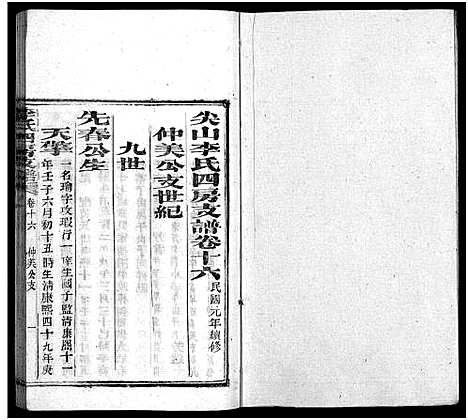 尖山李氏四房支譜卷十六 民國元年續修
仲美公支世紀
九世
先春公生
天擎 一名瑜字攻瑕行一庠生國子監清康熙十一
年壬子六月初十丑時生清康熙四十九年庚
李氏四房支譜 卷十六 仲美公支 一